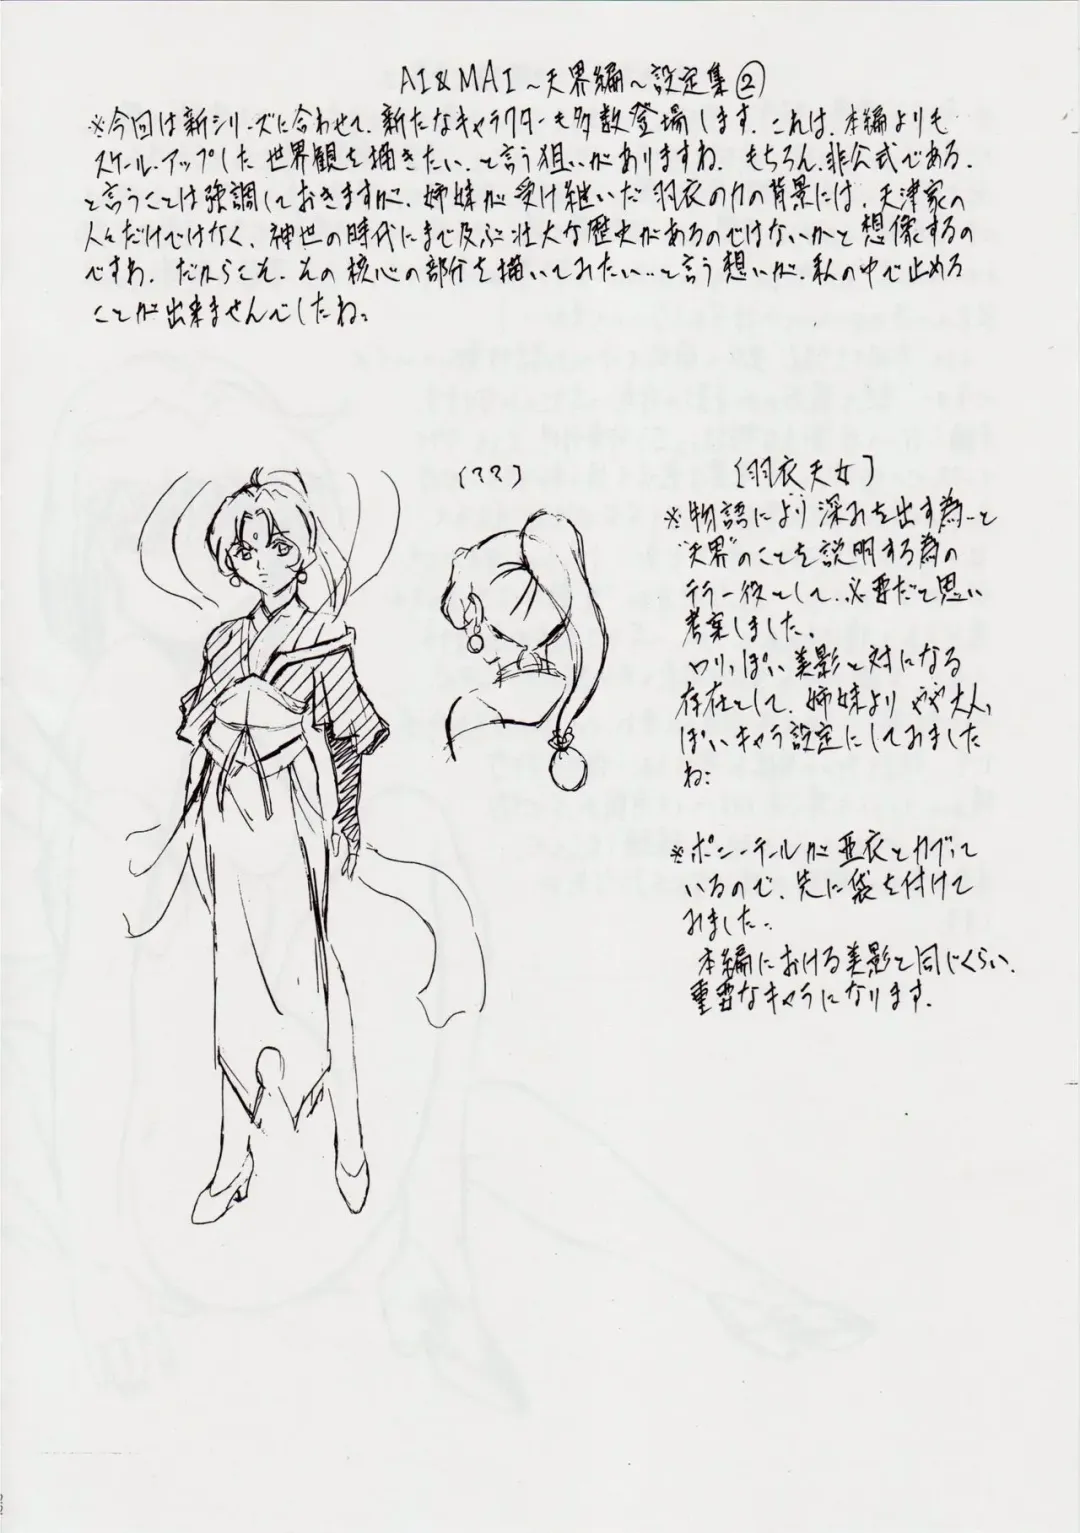 AI&MAI～天界編～設定集②
※今回は新シリーズに合わせて、新たなキャラクターも多数登場します。これは、本編よりも
スケール・アップした世界観を描きたい、と言う狙いがありますね。もちろん、非公式である、
と言うことは強調しておきますが、姉妹が受け継いだ羽衣の力の背景には、天津家の
人々だけではなく、神世の時代にまで及ぶ壮大な歴史があるのではないかと想像するの
ですね。だからこそ、その核心の部分を描いてみたい…と言う想いが、私の中で止める
ことが出来ませんでしたね。
(??)
〔羽衣天女〕
※物語により深みを出す為…と
"天界"のことを説明する為の
テラー役として、必要だと思い
考案しました。
ロリっぽい美影と対になる
存在として、姉妹よりやや大人っ
ぽいキャラ設定にしておました
ね。
※ポニーテールが亜衣とカブって
いるので、先に袋を付けて
みました…
本編における美影と同じくらい、
重要なキャラになります。